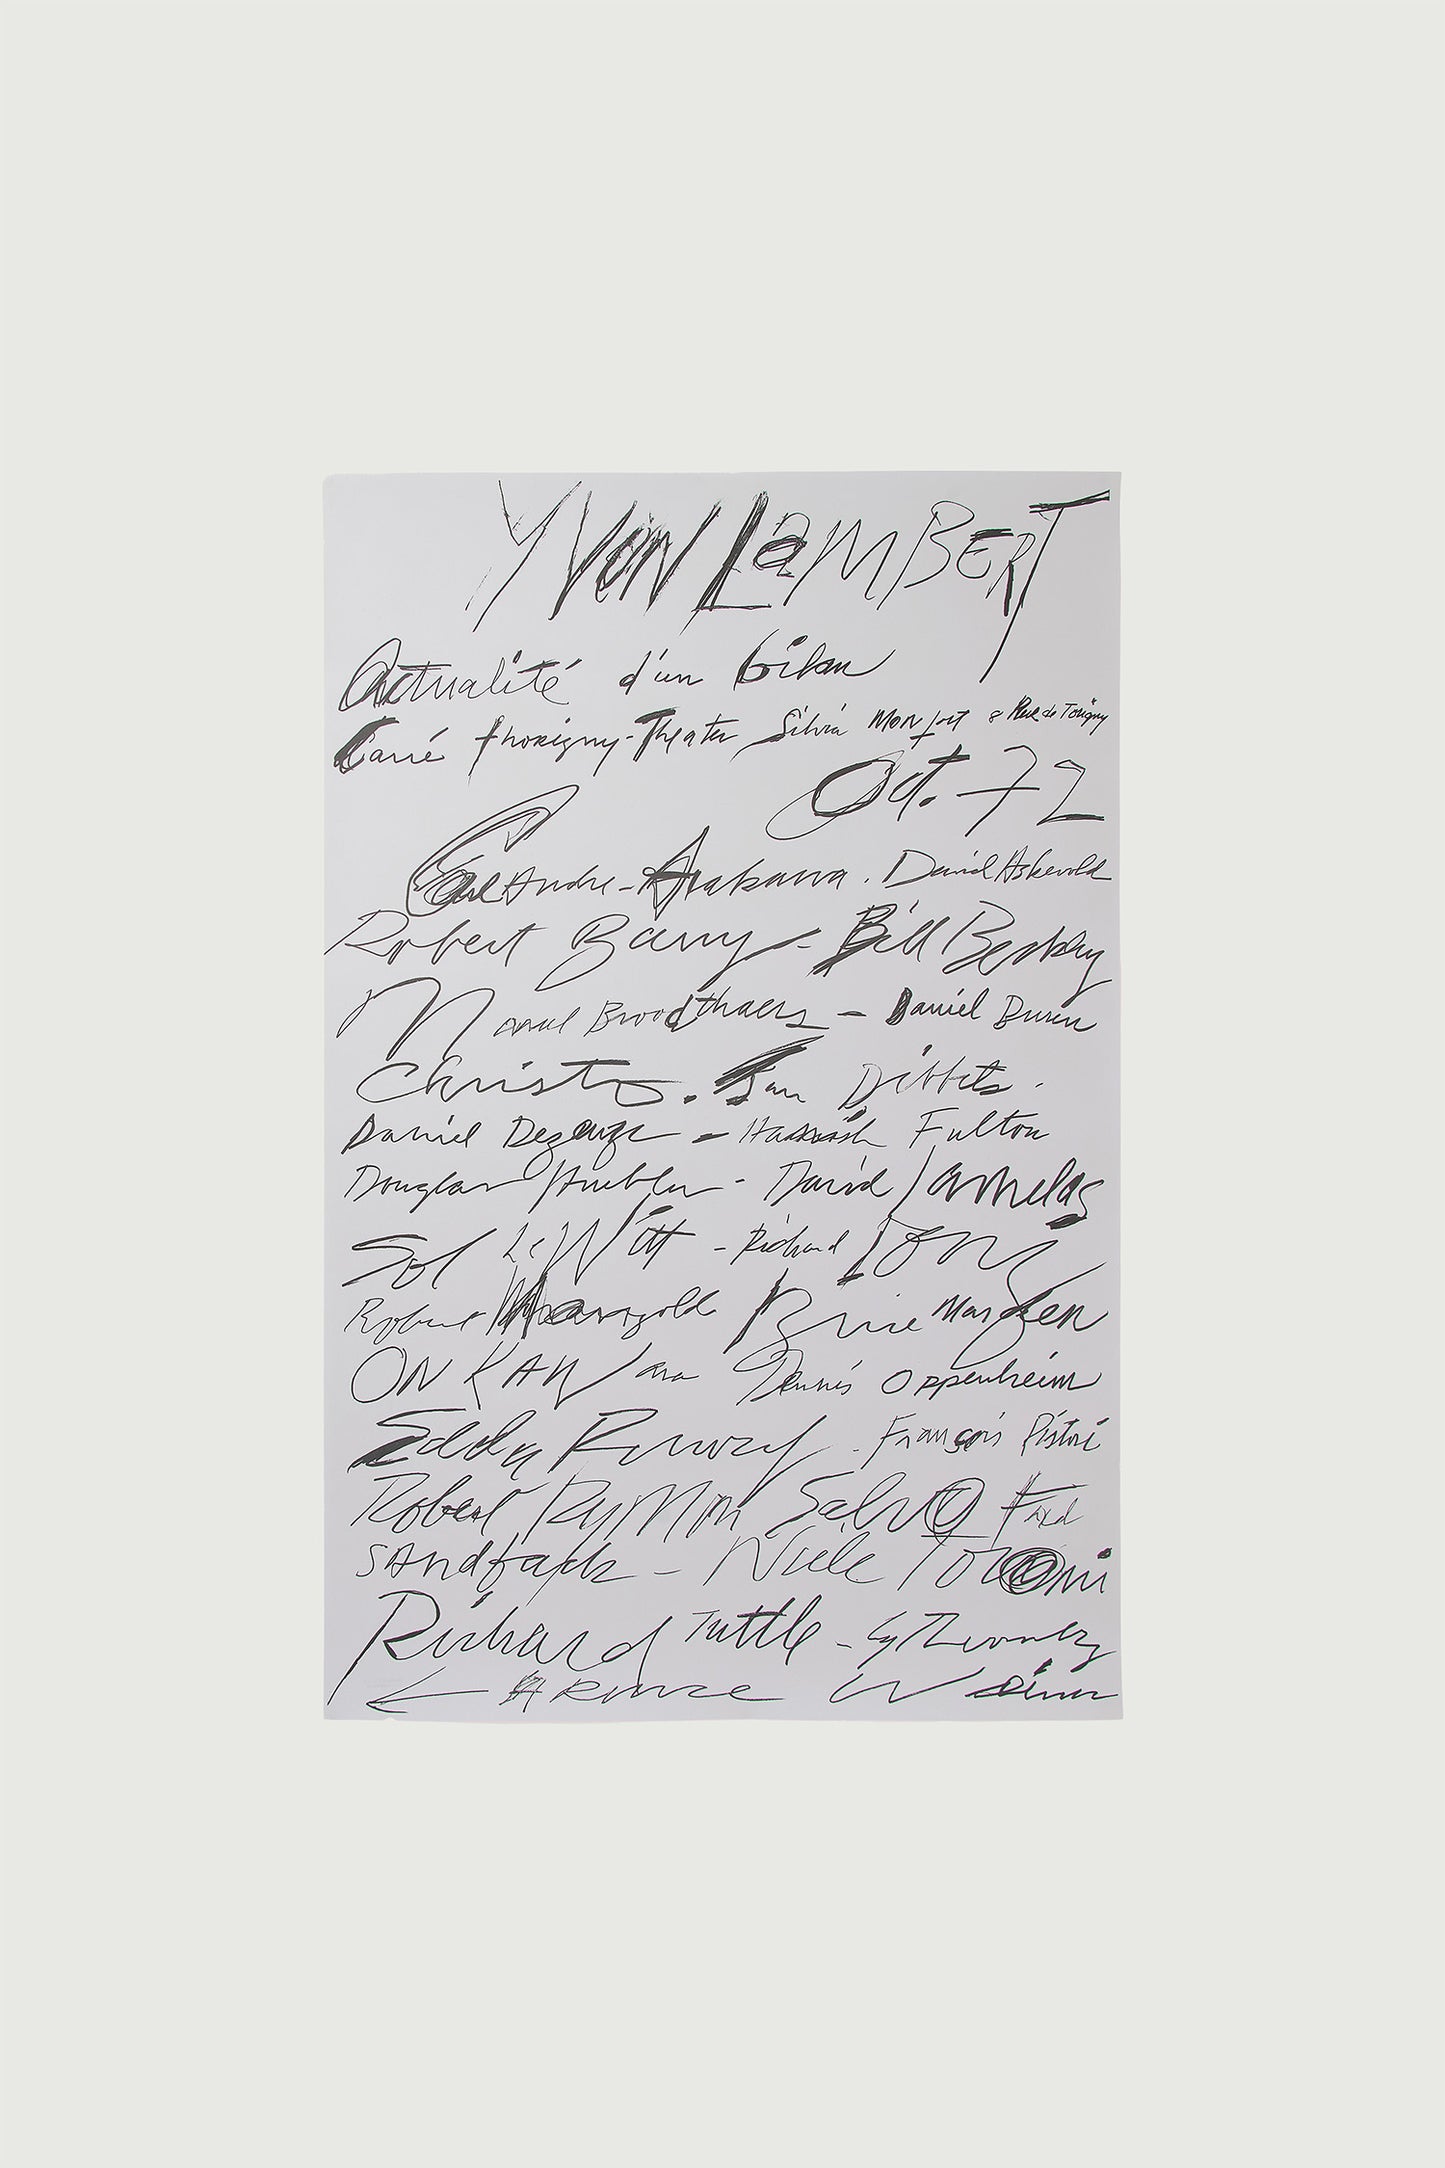 YVON LAMBERT
Actualité d'un bilan
Carré Thorigny-Theater Silvia Monfort 8 Rue de Torigny
Oct. 72
Carl Andre - Arakawa . David Askevold
Robert Barry - Bill Beckley
Marcel Broodthaers - Daniel Buren
Christo. Jan Dibbets.
Daniel Dezeuze - Hamish Fulton
Douglas Huebler - David Lamelas
Sol LeWitt - Richard Long
Robert Mangold Brice Marden
ON KAWara Dennis Oppenheim
Edda Renouf . François Ristori
Robert Ryman Salvo Fred
SAndback - Niele Toroni
Richard Tuttle - Cy Twombly
Weiner